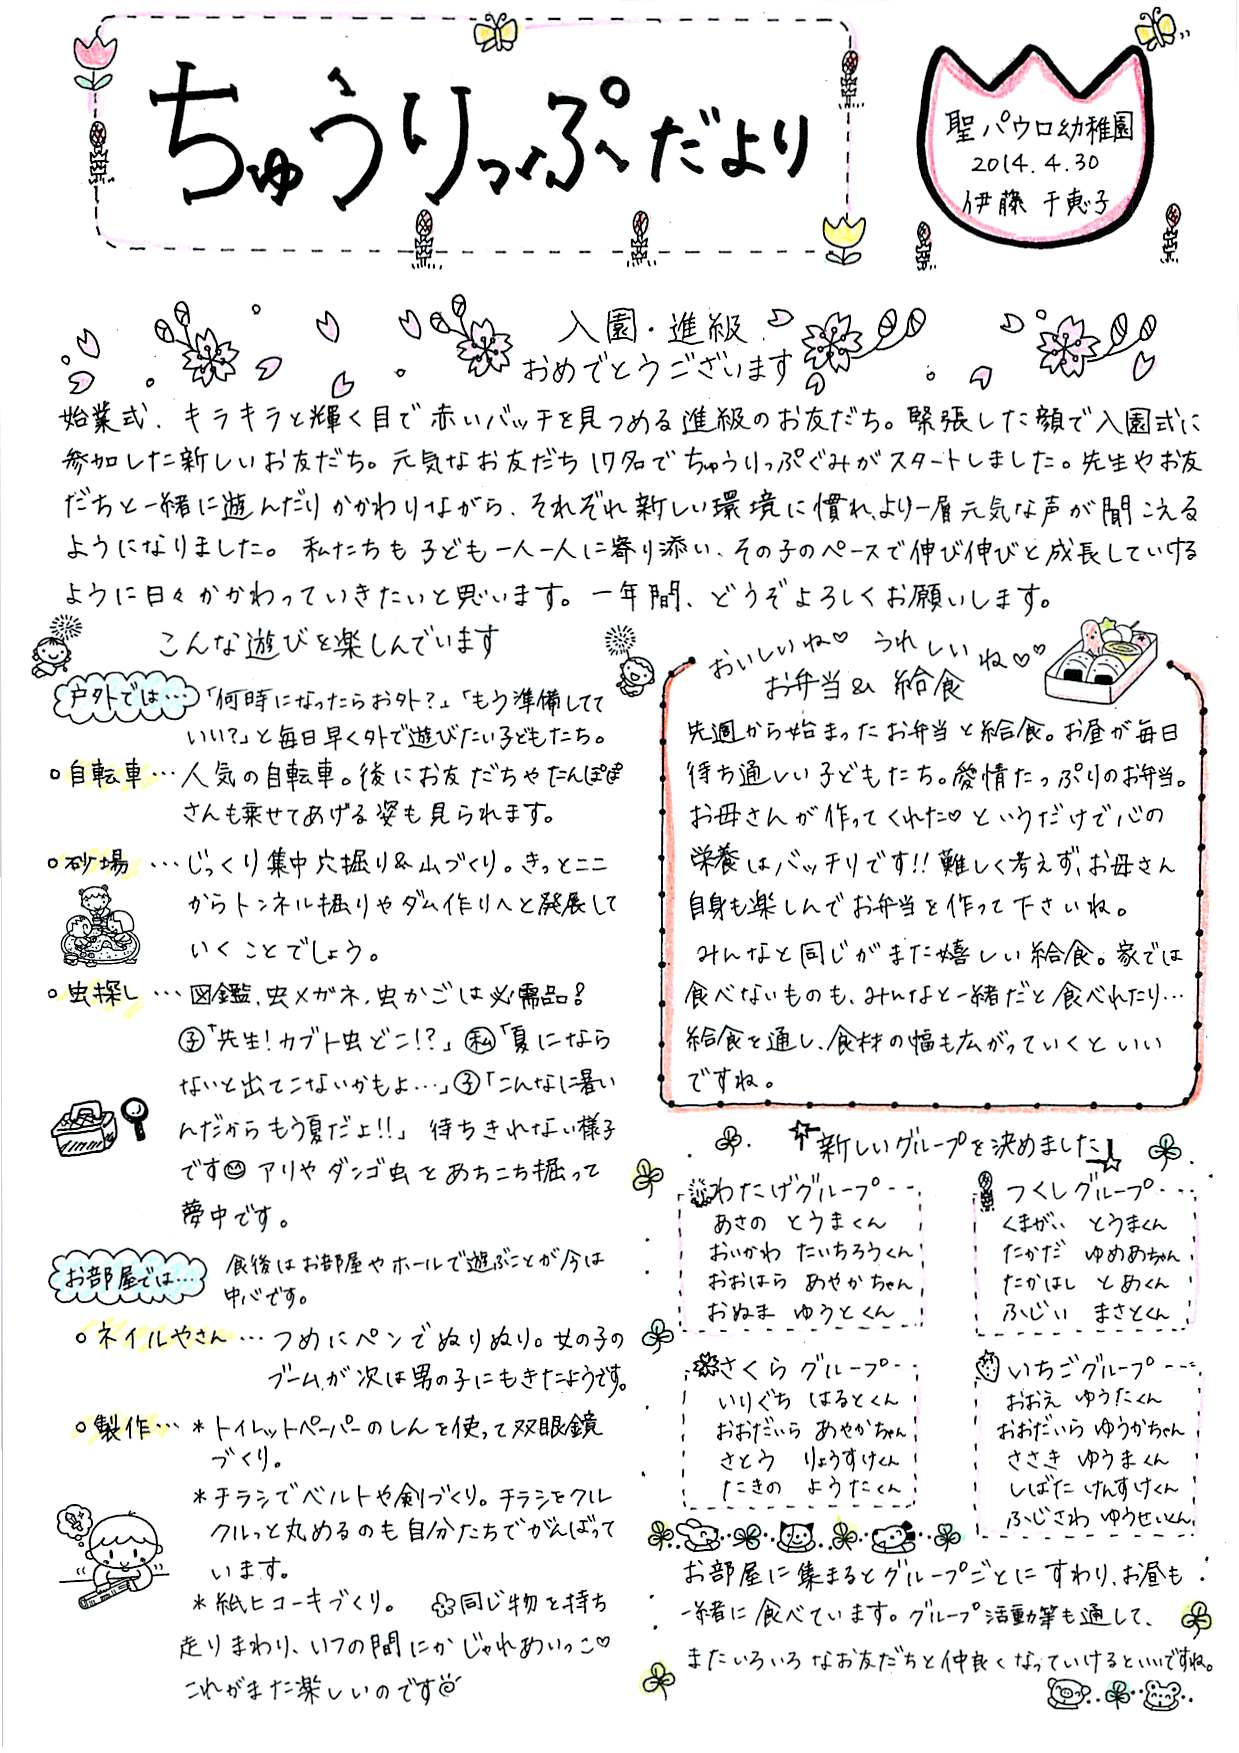 ちゅうりっぷだより
聖パウロ幼稚園
2014.4.30
伊藤 千恵子
入園・進級
おめでとうございます
始業式、キラキラと輝く目で赤いバッチを見つめる進級のお友だち。緊張した顔で入園式に
参加した新しいお友だち。元気なお友だち17名でちゅうりっぷぐみがスタートしました。先生やお友
だちと一緒に遊んだりかかわりながら、それぞれ新しい環境に慣れ、より一層元気な声が聞こえる
ようになりました。私たちも子ども一人一人に寄り添い、その子のペースで伸び伸びと成長していける
ように日々かかわっていきたいと思います。一年間、どうぞよろしくお願いします。
こんな遊びを楽しんでいます
戸外では…「何時になったらお外?」「もう準備してて
いい?」と毎日早く外で遊びたい子どもたち。
○自転車…人気の自転車。後にお友だちやたんぽぽ
さんも乗せてあげる姿も見られます。
○砂場…じっくり集中穴掘り&山づくり。きっとここ
からトンネル掘りやダム作りへと発展して
いくことでしょう。
○虫探し…図鑑、虫メガネ、虫かごは必需品!
子「先生!カブト虫どこ!?」私「夏になら
ないと出てこないかもよ…」子「こんなに暑い
んだからもう夏だよ!!」待ちきれない様子
です アリやダンゴ虫をあちこち掘って
夢中です。
お部屋では… 食後はお部屋やホールで遊ぶことが今は
中心です。
○ネイルやさん…つめにペンでぬりぬり。女の子の
ブームが次は男の子にもきたようです。
○製作…*トイレットペーパーのしんを使って双眼鏡
づくり。
*チラシでベルトや剣づくり。チラシをクル
クルっと丸めるのも自分たちでがんばって
います。
*紙ヒコーキづくり。 同じ物を持ち
走りまわり、いつの間にかじゃれあいっこ♡
これがまた楽しいのです
おいしいね♡ うれしいね♡♡
お弁当& 給食
先週から始まったお弁当と給食。お昼が毎日
待ち通しい子どもたち。愛情たっぷりのお弁当。
お母さんが作ってくれた♡というだけで心の
栄養はバッチリです!!難しく考えず、お母さん
自身も楽しんでお弁当を作って下さいね。
みんなと同じがまた嬉しい給食。家では
食べないものも、みんなと一緒だと食べれたり…
給食を通し、食材の幅も広がっていくといい
ですね。
新しいグループを決めました
わたげグループ
あさの とうまくん
おいかわ たいちろうくん
おおはら あやかちゃん
おぬま ゆうとくん
つくしグループ
くまがい とうまくん
たかだ ゆめあちゃん
たかはし とあくん
ふじい まさとくん
さくらグループ
いりぐち はるとくん
おおだいら あやかちゃん
さとう りょうすけくん
たきの ようたくん
いちごグループ
おおえ ゆうたくん
おおだいら ゆうかちゃん
ささき ゆうまくん
しばた けんすけくん
ふじさわ ゆうせいくん
お部屋に集まるとグループごとにすわり、お昼も
一緒に食べています。グループ活動等も通して、
またいろいろなお友だちと仲良くなっていけるといいですね。